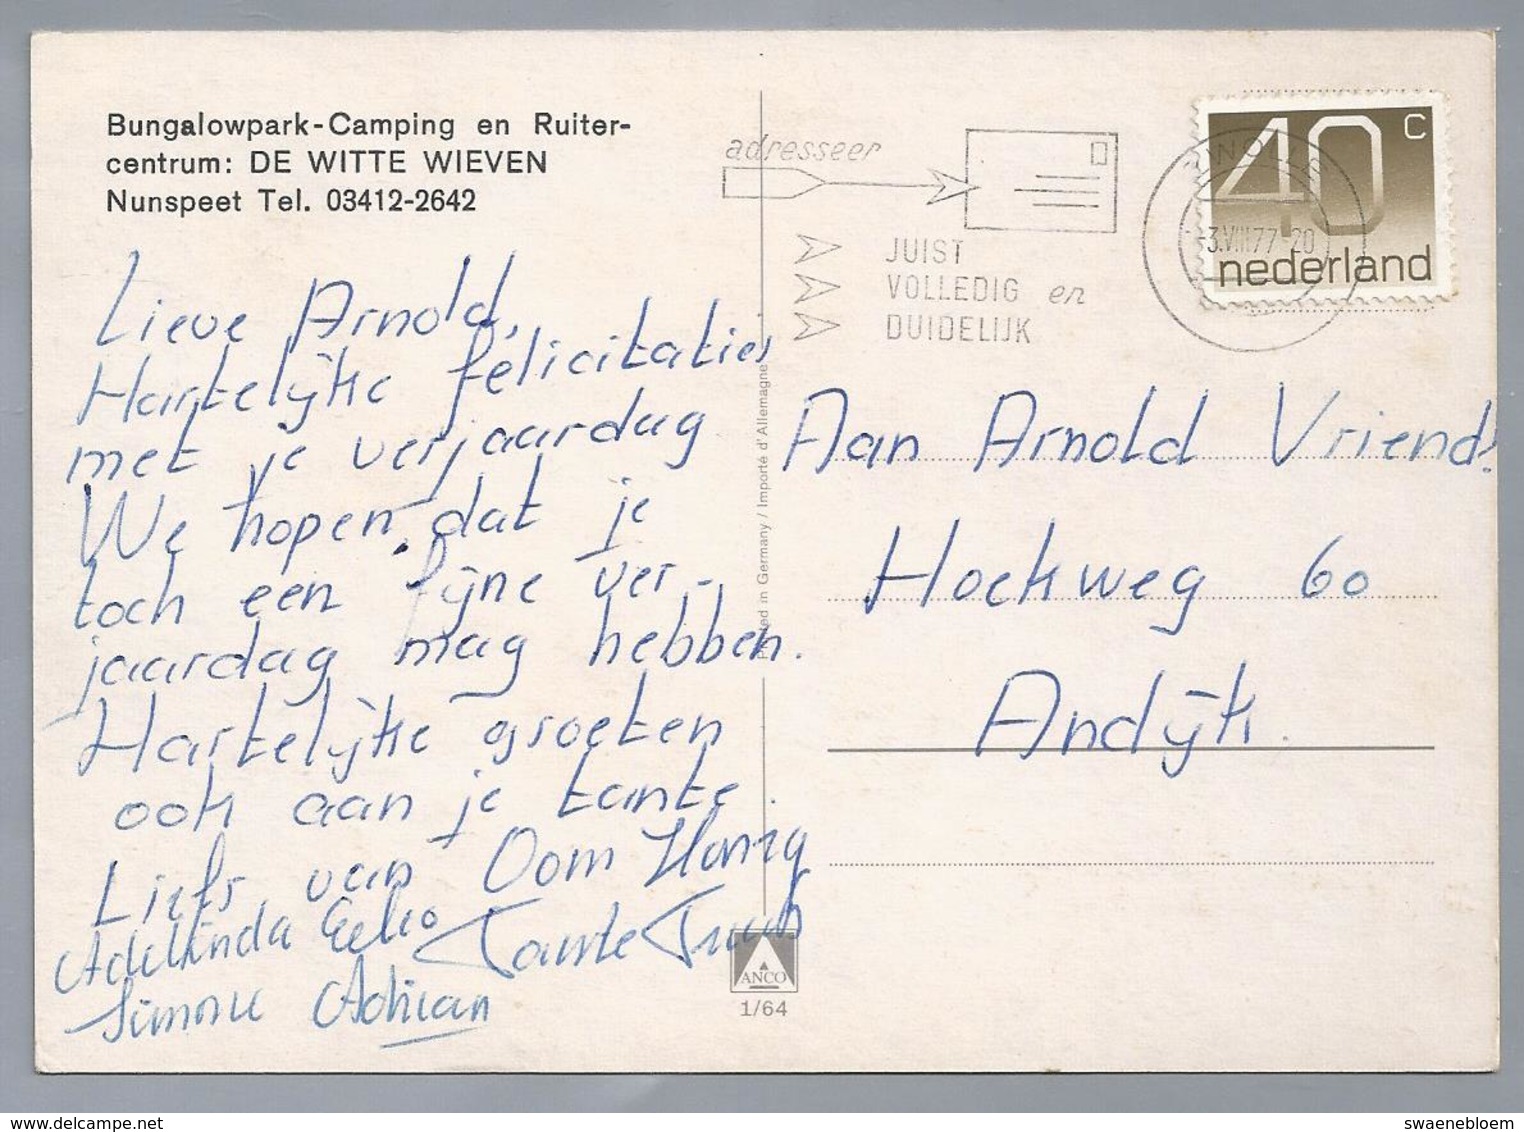 Bungalowpark-Camping en Ruiter-
centrum: DE WITTE WIEVEN
Nunspeet Tel. 03412-2642
Lieve Arnold,
Hartelijke felicitaties
met je verjaardag
We hopen dat je
toch een fijne ver-
jaardag mag hebben.
Hartelijke groeten
ook aan je tante.
Liefs van Oom
Adelinda Eelco Tante Truus
Simone Adrian
adresseer
JUIST
VOLLEDIG en
DUIDELIJK
ZWOLLE
-3.VIII77-20
40c
nederland
Aan Arnold Vriend.
Hoekweg 60
Andijk.
Printed in Germany / Importé d'Allemagne
ANCO
1/64
www.delcampe.net
swaenebloem